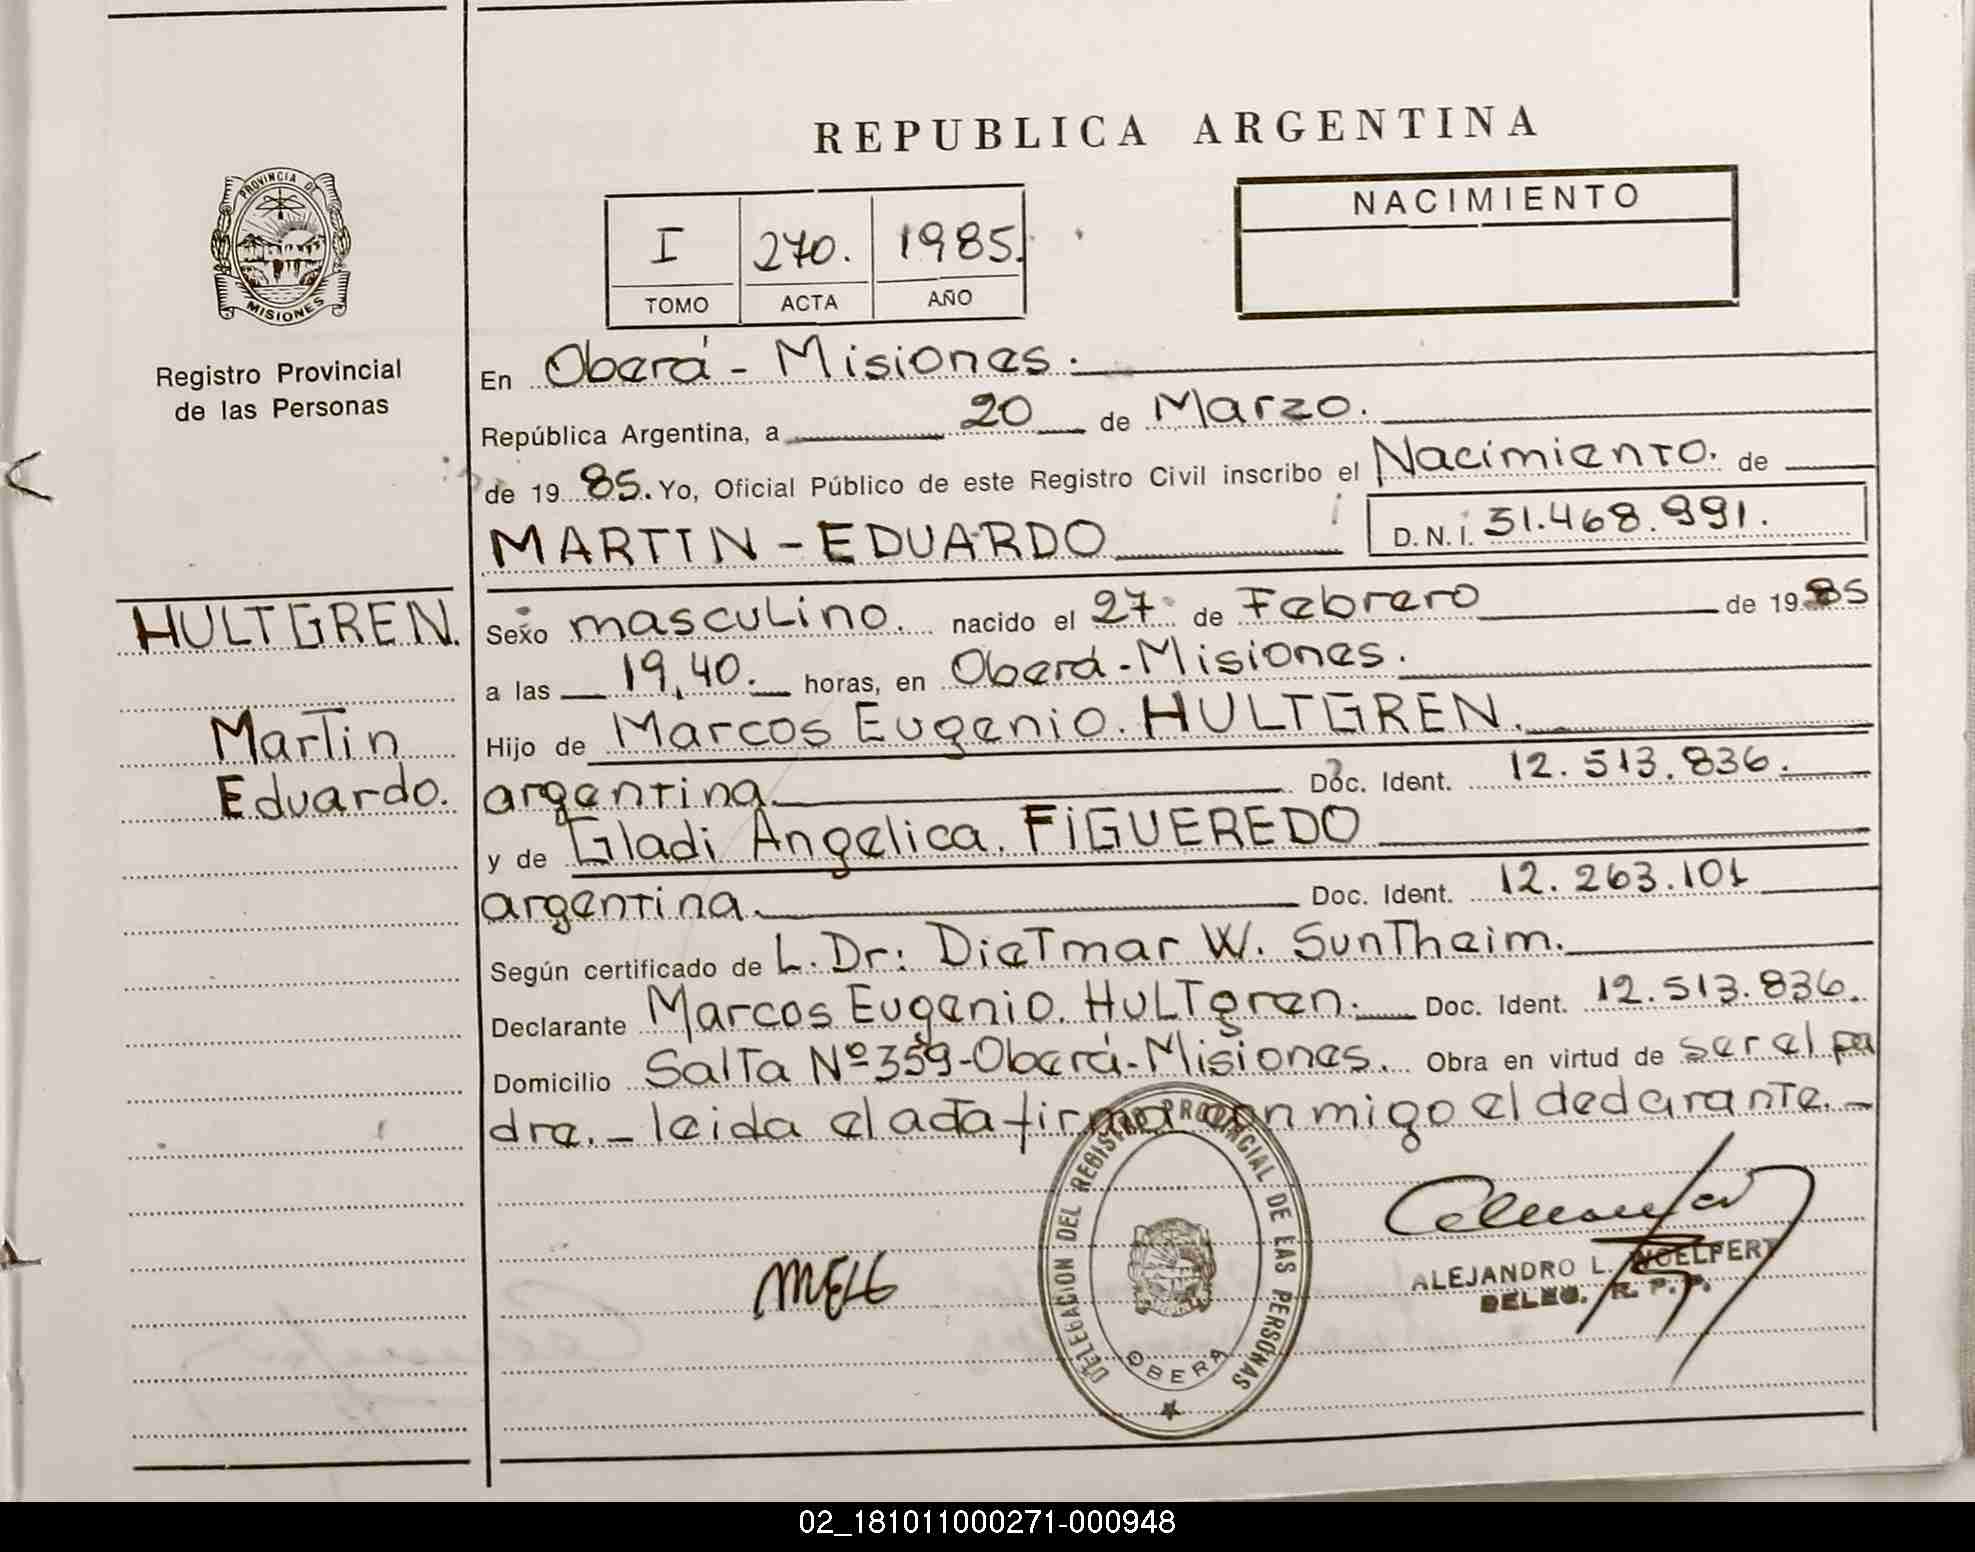 REPUBLICA ARGENTINA
PROVINCIA DE MISIONES
Registro Provincial
de las Personas
I 270. 1985.
TOMO ACTA AÑO
NACIMIENTO
En Oberá - Misiones.
República Argentina, a 20 de Marzo.
de 19 85. Yo, Oficial Público de este Registro Civil inscribo el Nacimiento. de
MARTIN - EDUARDO
D.N.I. 31.468.991.
HULTGREN.
Martin
Eduardo.
Sexo masculino. nacido el 27 de Febrero de 19 85
a las 19,40. horas, en Oberá - Misiones.
Hijo de Marcos Eugenio. HULTGREN.
argentina. Doc. Ident. 12.513.836.
y de Gladi Angelica. FIGUEREDO
argentina. Doc. Ident. 12.263.101
Según certificado de L. Dr: Dietmar W. Suntheim.
Declarante Marcos Eugenio. Hultgren. Doc. Ident. 12.513.836.
Domicilio Salta Nº 359 - Oberá - Misiones. Obra en virtud de ser el pa
dre. - leida el acta firma conmigo el declarante. -
DELEGACION DEL REGISTRO PROVINCIAL DE LAS PERSONAS
OBERA
MEH
ALEJANDRO L. NOELPERT
DELEG. R. P. P.
02_181011000271-000948